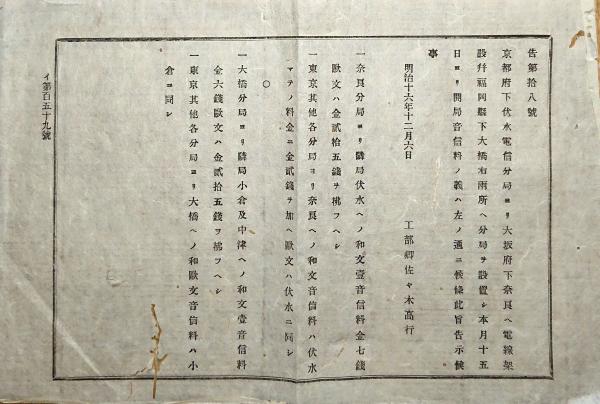 告第拾八號
京都府下伏水電信分局ヨリ大坂府下奈良ヘ電線架
設幷福岡縣下大橋右兩所ヘ分局ヲ設置シ本月十五
日ヨリ開局音信料ノ義ハ左ノ通ニ候條此旨告示候
事
明治十六年十二月六日
工部卿佐々木高行
一奈良分局ヨリ隣局伏水ヘノ和文壹音信料金七錢
歐文ハ金貳拾五錢ヲ拂フヘシ
一東京其他各分局ヨリ奈良ヘノ和文音信料ハ伏水
マテノ料金ニ金貳錢ヲ加ヘ歐文ハ伏水ニ同シ
○
一大橋分局ヨリ隣局小倉及中津ヘノ和文壹音信料
金六錢歐文ハ金貳拾五錢ヲ拂フヘシ
一東京其他各分局ヨリ大橋ヘノ和歐文音信料ハ小
倉ニ同シ
イ第百五十九號